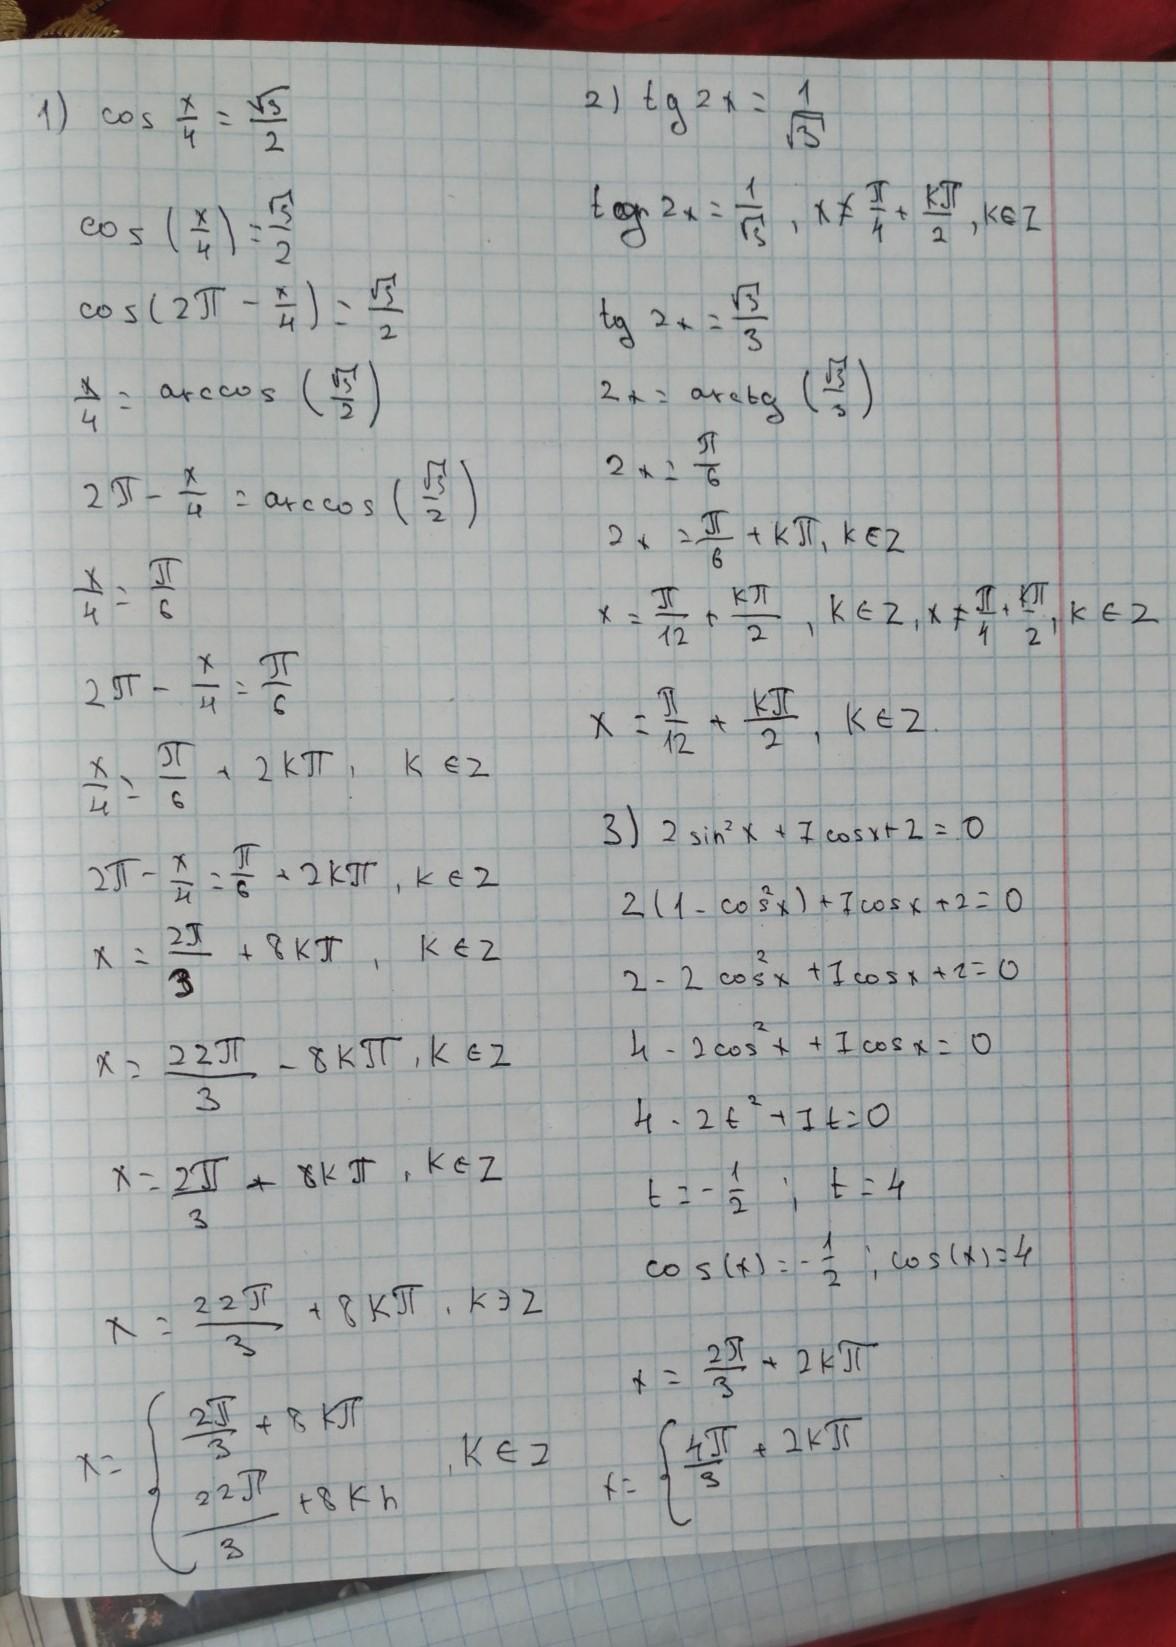 1) cos x/4 = √3/2
cos (x/4) = √3/2
cos(2π - x/4) = √3/2
x/4 = arccos (√3/2)
2π - x/4 = arccos (√3/2)
x/4 = π/6
2π - x/4 = π/6
x/4 = π/6 + 2kπ, k ∈ Z
2π - x/4 = π/6 + 2kπ, k ∈ Z
x = 2π/3 + 8kπ, k ∈ Z
x = 22π/3 - 8kπ, k ∈ Z
x = 2π/3 + 8kπ, k ∈ Z
x = 22π/3 + 8kπ, k ∋ Z
x = { 2π/3 + 8kπ
22π/3 + 8kπ , k ∈ Z
2) tg 2x = 1/√3
tg 2x = 1/√3, x ≠ π/4 + kπ/2, k ∈ Z
tg 2x = √3/3
2x = arctg (√3/3)
2x = π/6
2x = π/6 + kπ, k ∈ Z
x = π/12 + kπ/2, k ∈ Z, x ≠ π/4 + kπ/2, k ∈ Z
x = π/12 + kπ/2, k ∈ Z.
3) 2 sin² x + 7 cos x + 2 = 0
2(1 - cos² x) + 7 cos x + 2 = 0
2 - 2 cos² x + 7 cos x + 2 = 0
4 - 2 cos² x + 7 cos x = 0
4 - 2t² + 7t = 0
t = -1/2 ; t = 4
cos(x) = -1/2 ; cos(x) = 4
x = 2π/3 + 2kπ
x = { 4π/3 + 2kπ